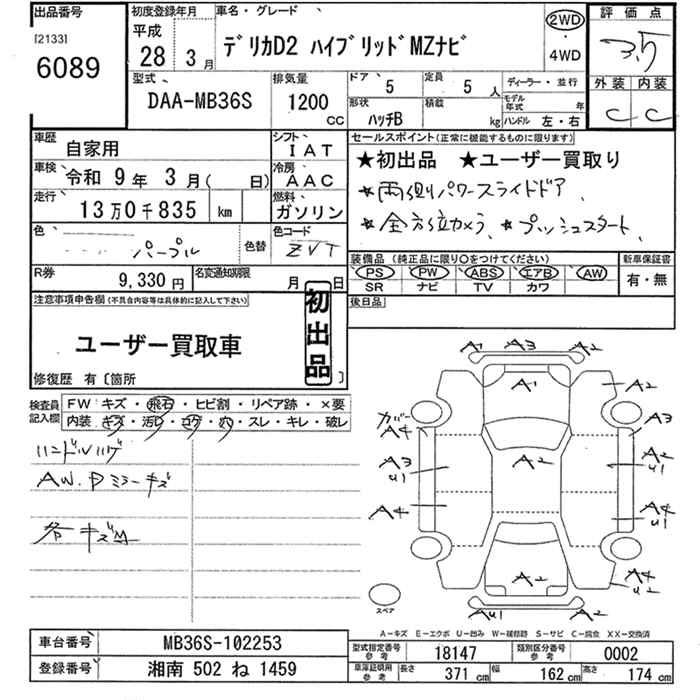 出品番号
[2133]
6089
初度登録年月
平成
28年 3月
車名・グレード
デリカD2 ハイブリッドMZナビ
2WD
・
4WD
評価点
3.5
型式
DAA-MB36S
排気量
1200 CC
ドア 5
定員 5 人
ディーラー・並行
形状 ハッチB
積載 kg
モデル年式 年
ハンドル 左・右
外装 内装
C C
車歴 自家用
シフト IAT
車検 令和 9年 3月( 日)
冷房 AAC
走行 13万0千835 km
燃料 ガソリン
色 パープル 色替
色コード ZVT
R券 9,330円
名変通知期限 月 日
セールスポイント(正常に機能するものに限ります)
★初出品 ★ユーザー買取り
★両側パワースライドドア
★全方位カメラ ★プッシュスタート
装備品 (純正品に限り○をつけてください)
新車保証書
PS PW ABS エアB AW
有・無
SR ナビ TV カワ
後日品
注意事項申告欄(不具合内容等は具体的に記入して下さい)
初出品
ユーザー買取車
修復歴 有〔箇所 〕
検査員記入欄
FW キズ・飛石・ヒビ割・リペア跡・×要
内装 キズ・汚レ・コゲ・穴・スレ・キレ・破レ
ハンドルハゲ
AW.Pミラーキズ
各キズM
A1 A3 A2
A1 A2
ガバー
A4
A3
A3
U1
A2
A2
U1
A4
A4
U1
A4
U2
A2
AU1 A2
スペア
A-キズ E-エクボ U-凹み W-補修跡 S-サビ C-腐食 XX-交換済
車台番号 MB36S-102253
登録番号 湘南 502 ね 1459
型式指定番号 参考 18147
類別区分番号 参考 0002
車庫証明用 参考 長さ 371 cm 幅 162 cm 高さ 174 cm